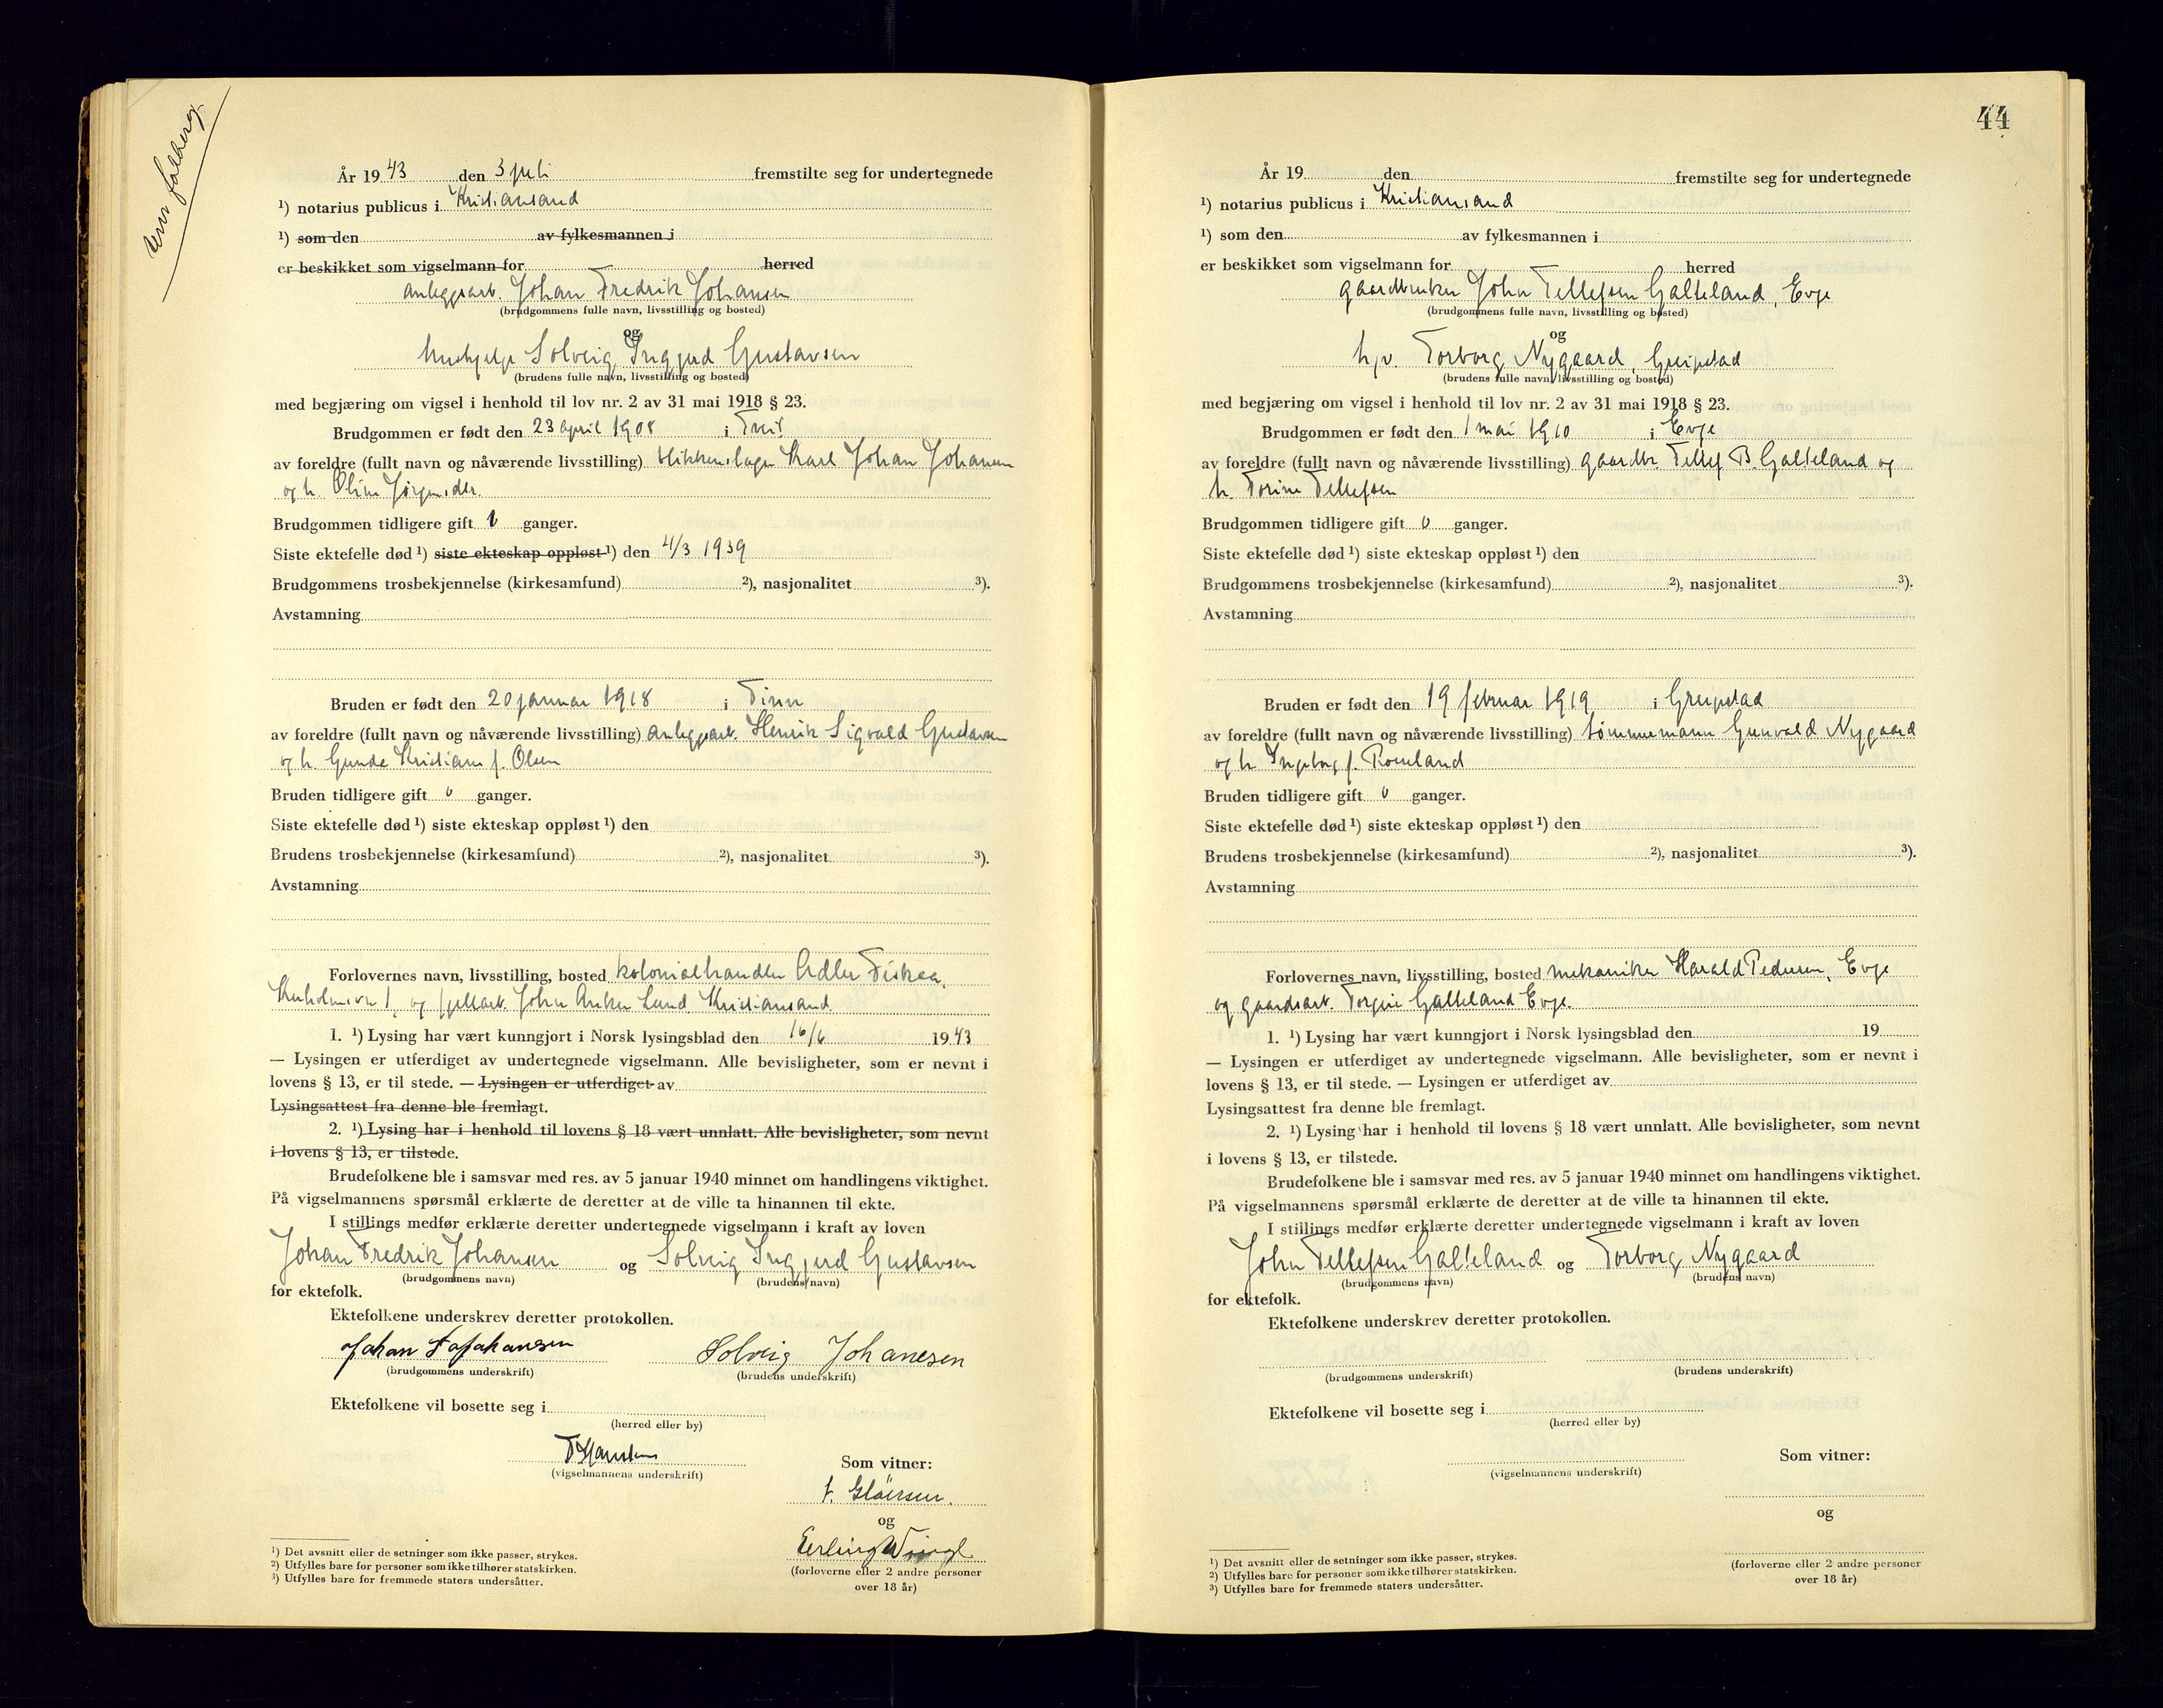 År 1943 den 3 juli fremstilte seg for undertegnede
¹) notarius publicus i Kristiansand
¹) som den av fylkesmannen i
er beskikket som vigselmann for herred
anleggsarb. Johan Fredrik Johansen
(brudgommens fulle navn, livsstilling og bosted)
og
hushjelp Solveig Ingjerd Gustavsen
(brudens fulle navn, livsstilling og bosted)
med begjæring om vigsel i henhold til lov nr. 2 av 31 mai 1918 § 23.
Brudgommen er født den 23 april 1908 i
av foreldre (fullt navn og nåværende livsstilling) blikkenslager Karl Johan Johansen
og h. Oline Jørgensdtr.
Brudgommen tidligere gift 1 ganger.
Siste ektefelle død ¹) siste ekteskap oppløst ¹) den 4/3 1939
Brudgommens trosbekjennelse (kirkesamfund) ²), nasjonalitet ³).
Avstamning
Bruden er født den 20 januar 1918 i Tinn
av foreldre (fullt navn og nåværende livsstilling) anleggsarb. Henrik Sigvald Gustavsen
og h. Gunda Kristiane f. Olsen
Bruden tidligere gift 0 ganger.
Siste ektefelle død ¹) siste ekteskap oppløst ¹) den
Brudens trosbekjennelse (kirkesamfund) ²), nasjonalitet ³).
Avstamning
Forlovernes navn, livsstilling, bosted kolonialhandler Adler Fiskaa,
Kuholmsvn 1, og fjellarb. John Anker Lund Kristiansand
1. ¹) Lysing har vært kunngjort i Norsk lysingsblad den 16/6 1943
— Lysingen er utferdiget av undertegnede vigselmann. Alle bevisligheter, som er nevnt i
lovens § 13, er til stede. — Lysingen er utferdiget av
Lysingsattest fra denne ble fremlagt.
2. ¹) Lysing har i henhold til lovens § 18 vært unnlatt. Alle bevisligheter, som nevnt
i lovens § 13, er tilstede.
Brudefolkene ble i samsvar med res. av 5 januar 1940 minnet om handlingens viktighet.
På vigselmannens spørsmål erklærte de deretter at de ville ta hinannen til ekte.
I stillings medfør erklærte deretter undertegnede vigselmann i kraft av loven
Johan Fredrik Johansen og Solveig Ingjerd Gustavsen
(brudgommens navn) (brudens navn)
for ektefolk.
Ektefolkene underskrev deretter protokollen.
Johan F. Johansen Solveig Johansen
(brudgommens underskrift) (brudens underskrift)
Ektefolkene vil bosette seg i
(herred eller by)
(vigselmannens underskrift)
Som vitner:
Gløersen.
og
Erling
(forloverne eller 2 andre personer
over 18 år)
¹) Det avsnitt eller de setninger som ikke passer, strykes.
²) Utfylles bare for personer som ikke tilhører statskirken.
³) Utfylles bare for fremmede staters undersåtter.
44
År 19 den fremstilte seg for undertegnede
¹) notarius publicus i Kristiansand
¹) som den av fylkesmannen i
er beskikket som vigselmann for herred
gaardbruker John Tellefsen Galteland, Evje
(brudgommens fulle navn, livsstilling og bosted)
og
Torborg Nygaard, Greipstad
(brudens fulle navn, livsstilling og bosted)
med begjæring om vigsel i henhold til lov nr. 2 av 31 mai 1918 § 23.
Brudgommen er født den 1 mai 1910 i Evje
av foreldre (fullt navn og nåværende livsstilling) gaardbr. Tellef B. Galteland og
h. Torine Tellefsen
Brudgommen tidligere gift 0 ganger.
Siste ektefelle død ¹) siste ekteskap oppløst ¹) den
Brudgommens trosbekjennelse (kirkesamfund) ²), nasjonalitet ³).
Avstamning
Bruden er født den 19 februar 1919 i Greipstad
av foreldre (fullt navn og nåværende livsstilling) tømmermann Gunvald Nygaard
og h. Ingeborg f. Rosseland
Bruden tidligere gift 0 ganger.
Siste ektefelle død ¹) siste ekteskap oppløst ¹) den
Brudens trosbekjennelse (kirkesamfund) ²), nasjonalitet ³).
Avstamning
Forlovernes navn, livsstilling, bosted mekaniker Harald Pedersen, Evje
og gaardsarb. Torgeir Galteland Evje.
1. ¹) Lysing har vært kunngjort i Norsk lysingsblad den 19
— Lysingen er utferdiget av undertegnede vigselmann. Alle bevisligheter, som er nevnt i
lovens § 13, er til stede. — Lysingen er utferdiget av
Lysingsattest fra denne ble fremlagt.
2. ¹) Lysing har i henhold til lovens § 18 vært unnlatt. Alle bevisligheter, som nevnt
i lovens § 13, er tilstede.
Brudefolkene ble i samsvar med res. av 5 januar 1940 minnet om handlingens viktighet.
På vigselmannens spørsmål erklærte de deretter at de ville ta hinannen til ekte.
I stillings medfør erklærte deretter undertegnede vigselmann i kraft av loven
John Tellefsen Galteland og Torborg Nygaard
(brudgommens navn) (brudens navn)
for ektefolk.
Ektefolkene underskrev deretter protokollen.
(brudgommens underskrift) (brudens underskrift)
Ektefolkene vil bosette seg i
(herred eller by)
(vigselmannens underskrift)
Som vitner:
og
(forloverne eller 2 andre personer
over 18 år)
¹) Det avsnitt eller de setninger som ikke passer, strykes.
²) Utfylles bare for personer som ikke tilhører statskirken.
³) Utfylles bare for fremmede staters undersåtter.